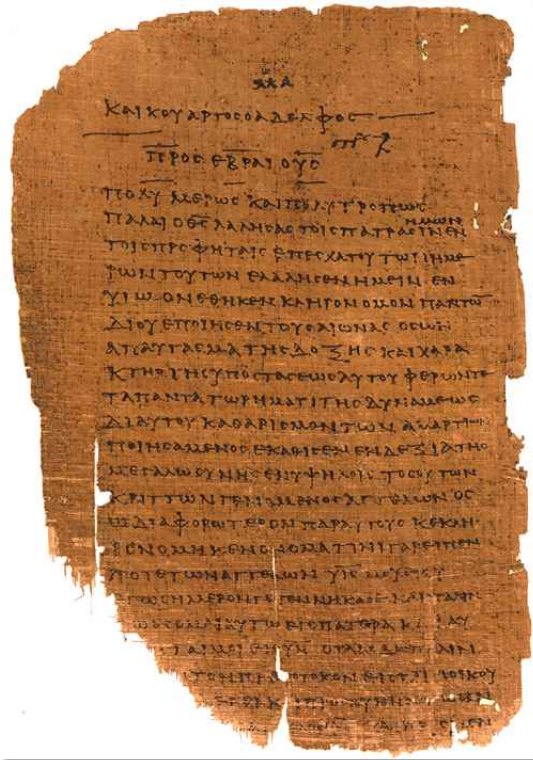 ΚΑΙΚΟΥΑΡΤΟϹΟΑΔΕΛΦΟϹ
ΠΡΟϹΕΒΡΑΙΟΥϹ
ΠΟΛΥΜΕΡΩϹΚΑΙΠΟΛΥΤΡΟΠΩϹ
ΗΜΩΝ
ΠΑΛΑΙΟΘ̅Ϲ̅ΛΑΛΗϹΑϹΤΟΙϹΠΑΤΡΑϹΙΝΕΝ
ΤΟΙϹΠΡΟΦΗΤΑΙϹΕΠΕϹΧΑΤΟΥΤΩΝΗΜΕ
ΡΩΝΤΟΥΤΩΝΕΛΑΛΗϹΕΝΗΜΕΙΝΕΝ
ΥΙΩΟΝΕΘΗΚΕΝΚΛΗΡΟΝΟΜΟΝΠΑΝΤΩ̅
ΔΙΟΥΕΠΟΙΗϹΕΝΤΟΥϹΑΙΩΝΑϹΟϹΩΝ
ΑΠΑΥΓΑϹΜΑΤΗϹΔΟΞΗϹΚΑΙΧΑΡΑ
ΚΤΗΡΤΗϹΥΠΟϹΤΑϹΕΩϹΑΥΤΟΥΦΕΡΩΝΤΕ
ΤΑΠΑΝΤΑΤΩΡΗΜΑΤΙΤΗϹΔΥΝΑΜΕΩϹ
ΔΙΑΥΤΟΥΚΑΘΑΡΙϹΜΟΝΤΩΝΑΜΑΡΤΙΩΝ
ΠΟΙΗϹΑΜΕΝΟϹΕΚΑΘΙϹΕΝΕΝΔΕΞΙΑΤΗϹ
ΜΕΓΑΛΩϹΥΝΗϹΕΝΥΨΗΛΟΙϹΤΟϹΟΥΤΩΝ
ΚΡΙΤΤΩΝΓΕΝΟΜΕΝΟϹΑΓΓΕΛΩΝΟϹ
ΩΔΙΑΦΟΡΩΤΕΡΟΝΠΑΡΑΥΤΟΥϹΚΕΚΛΗ
ΡΟΝΟΜΗΚΕΝΟΝΟΜΑΤΙΝΙΓΑΡΕΙΠΕΝ
ΠΟΤΕΤΩΝΑΓΓΕΛΩΝΥ̅Ι̅Ϲ̅ΜΟΥΕΙϹΥ
ΕΓΩϹΗΜΕΡΟΝΓΕΓΕΝΝΗΚΑϹΕΚΑΙΠΑΛΙΝ
ΑΥΤΩΕΙϹΠΑΤΕΡΑΚΑΙΑΥ